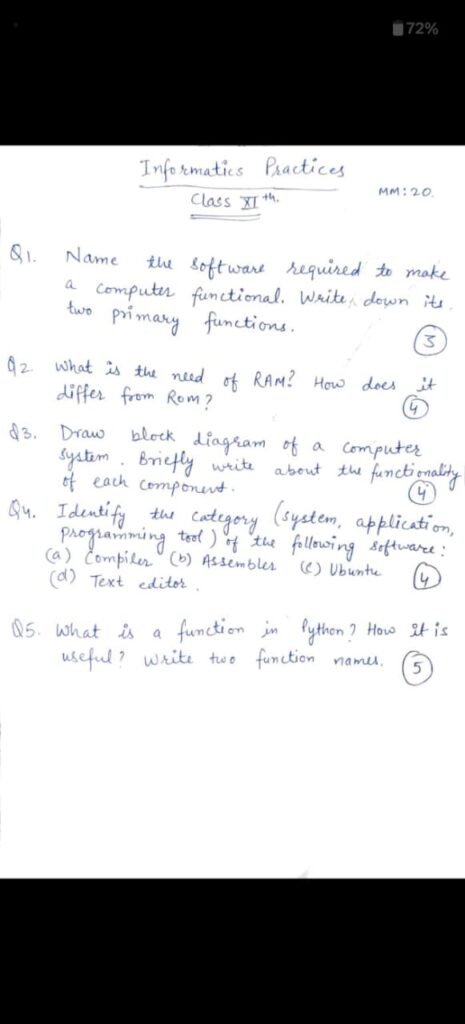 72%
Informatics Practices
Class XIth.
MM: 20.
Q1. Name the software required to make
a computer functional. Write down its
two primary functions.
3
Q2 What is the need of RAM? How does it
differ from ROM?
4
Q3. Draw block diagram of a computer
system. Briefly write about the functionality
of each component.
4
Q4. Identify the category (system, application,
programming tool) of the following software:
(a) Compiler (b) Assembler (c) Ubuntu
(d) Text editor.
4
Q5. What is a function in Python? How it is
useful? Write two function names.
5